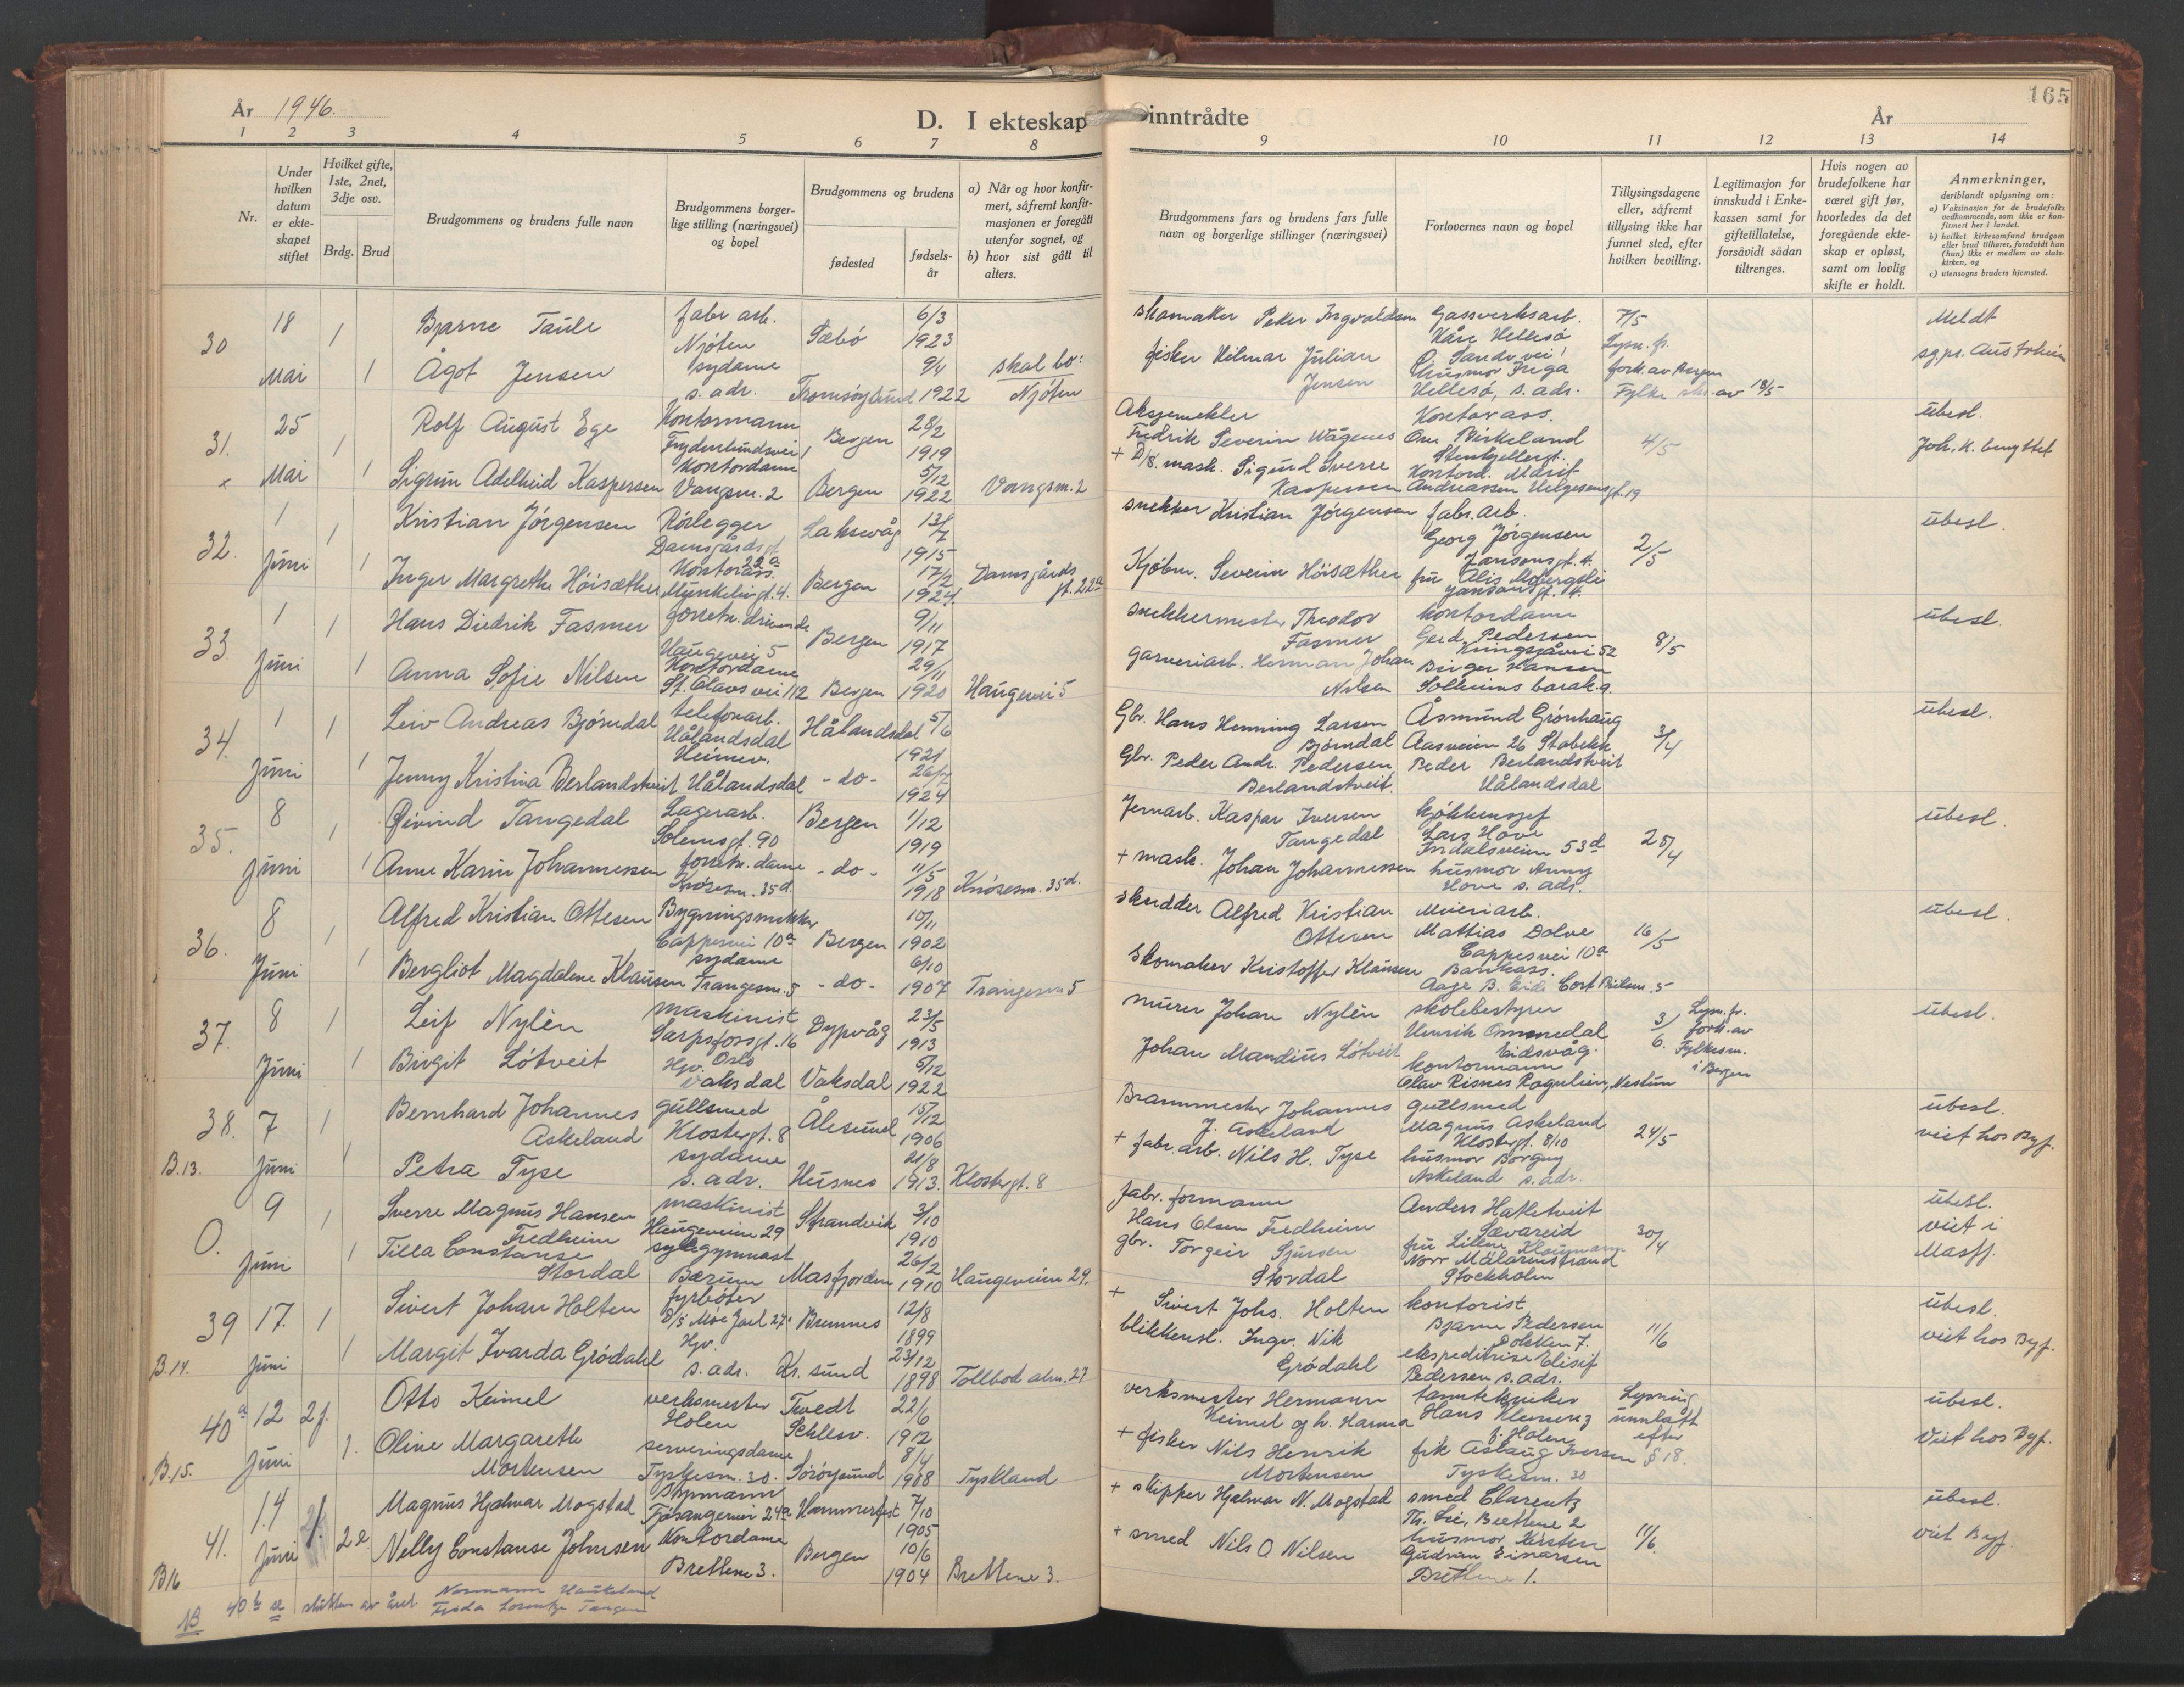 År 1946.
D. I ekteskap inntrådte
År
165
1 2 3 4 5 6 7 8 9 10 11 12 13 14
Nr.
Under hvilken datum er ekteskapet stiftet
Hvilket gifte, 1ste, 2net, 3dje osv.
Brdg. Brud
Brudgommens og brudens fulle navn
Brudgommens borgerlige stilling (næringsvei) og bopel
Brudgommens og brudens
fødested
fødselsår
a) Når og hvor konfirmert, såfremt konfirmasjonen er foregått utenfor sognet, og
b) hvor sist gått til alters.
Brudgommens fars og brudens fars fulle navn og borgerlige stillinger (næringsvei)
Forlovernes navn og bopel
Tillysingsdagene eller, såfremt tillysing ikke har funnet sted, efter hvilken bevilling.
Legitimasjon for innskudd i Enkekassen samt for giftetillatelse, forsåvidt sådan tiltrenges.
Hvis nogen av brudefolkene har været gift før, hvorledes da det foregående ekteskap er opløst, samt om lovlig skifte er holdt.
Anmerkninger,
deriblandt oplysning om:
a) Vaksinasjon for de brudefolks vedkommende, som ikke er konfirmert her i landet.
b) hvilket kirkesamfund brudgom eller brud tilhører, forsåvidt han (hun) ikke er medlem av statskirken, og
c) utensogns bruders hjemsted.
30 18 Mai 1 Bjarne Taule fabr arb. Njøten Sæbø 6/3 1923
skomaker Peter Ingvaldsen Gassverksarb. Kåre Hellesö 7/5 Lysn. fr. Meldt
1 Ågot Jensen sydame s. adr. Tromsøysund 9/4 1922 skal bo: Njøten
fisker Hilmar Julian Jensen husmor Hellesö, s. adr. Fylke av 18/5 sgpr. Austrheim
31. 25 Mai 1 Rolf August Ege Kontormann Bergen 28/2 1919
Aksjemekler Fredrik Severin Wågenes Kontorass. Birkeland 4/5 übesl.
x 1 Sigrun Adelheid Kaspersen Kontordame Vangsm. 2 Bergen 5/12 1922 Vangsm. 2
+ D/S. mask. Sigurd Sverre Kaspersen Kontord. Andreassen Helgesensgt. 19 Joh. K. benyttet
32. 1 Juni 1 Kristian Jörgensen Rörlegger Damsgårdsgt. 22a Laksevåg 13/7 1915
snekker Kristian Jörgensen fabr. arb. Georg Jörgensen Jansonsgt. 4. 2/5 übesl.
1 Inger Margrethe Höisæther Kontorass. Munkelivgt. 4. Bergen 17/2 1924. Damsgårdsgt. 22a
Kjöbm. Severin Höisæther fru Alis Jansonsgt. 4.
33. 1 Juni 1 Hans Diedrik Fasmer forretn. drivende Haugevei 5 Bergen 9/11 1917
snekkermester Theodor Fasmer kontordame Gerd Pedersen 8/5 übesl.
1 Anna Sofie Nilsen Kontordame St. Olavs vei 112 Bergen 29/11 1920 Haugevei 5
garveriarb. Herman Johan Nilsen Birger Hansen Solheims barak. 9.
34. 1 Juni 1 Leiv Andreas Björndal telefonarb. Hålandsdal Hålandsdal 5/6 1921
Gbr. Hans Henning Larsen Björndal Åsmund Grönhaug Aasveien 26 Stabekk 3/4 übesl.
1 Jenny Kristina Berlandstveit Heimev. Hålandsdal -do- 26/7 1924
Gbr. Peder Andr. Pedersen Berlandstveit. Peder Berlandstveit Hålandsdal
35. 8 Juni 1 Øivind Tangedal Lagerarb. Solemsgt. 90 Bergen 1/12 1919
Jernarb. Kaspar Iversen Tangedal kjökkensjef Lars Hove 53d 25/4 übesl.
1 Anne Karin Johannessen forretn. dame Knösesm. 35d. -do- 11/5 1918 Knösesm. 35d.
+ mask. Johan Johannessen husmor Anny Hove s. adr.
36. 8 Juni 1 Alfred Kristian Ottesen Bygningssnekker Cappesvei 10a Bergen 10/11 1902
skredder Alfred Kristian Ottesen Meieriarb. Mattias Dolve Cappesvei 10a 16/5 übesl.
1 Bergliot Magdalene Klausen sydame Trangesm. 5 -do- 6/10 1907 Trangesm 5
skomaker Kristoffer Klausen Bankass. Aage B. Eide Cort Pilsm. 5
37. 8 Juni 1 Leif Nylèn maskinist Sarpsfossgt. 16 Oslo Dypvåg 23/5 1913
murer Johan Nylèn skolebestyrer Henrik Ommedal Eidsvåg. 3/6. Lysn. fr. fork. av Fylkesm. i Bergen übesl.
1 Birgit Lötveit Hjv. Vaksdal Vaksdal 5/12 1922
Johan Mandius Lötveit kontormann Olav Risnes Rogulien, Nestun
38. 7 Juni 1 Bernhard Johannes Askeland gullsmed Klostergt. 8 Ålesund 15/12 1906
Brannmester Johannes J. Askeland gullsmed Magnus Askeland Klostergt. 8/10 24/5 übesl. viet hos Byf.
B.13. 1 Petra Tyse sydame s. adr. Husnes 21/8 1913. Klostergt. 8
+ fabr. arb. Nils H. Tyse husmor Borgny Askeland s. adr.
0. 9 Juni 1 Sverre Magnus Hansen Fredheim maskinist Haugeveien 29 Strandvik 3/10 1910
fabr. formann Hans Olsen Fredheim Anders Hatletveit Sævareid 30/4 übesl. viet i Masfj.
1 Tilla Constanse Stordal sykegymnast Bærum Masfjorden 26/2 1910 Haugeveien 29.
gbr. Torgeir Sjursen Stordal fru Lillne Norr Mälarstrand Stockholm
39 17. Juni 1 Sivert Johan Holten fyrböter D/S Møre Jarl Bremnes 12/8 1899
+ Sivert Johs. Holten kontorist Bjarne Pedersen Dokken 7. 11/6 übesl. viet hos Byf.
B.14. 1 Margit Ivarda Grödahl Hjv. s. adr. Kr. sund 23/12 1898 Tollbod alm. 27
blikkensl. Ingv. Nik Grödahl ekspeditrise Elisif Pedersen s. adr.
40a 12 Juni 2f. Otto Keimel verksmester Holen Tvedt Schlesv. 22/6 1912
verksmester Hermann Keimel og h. Hanna tanntekniker Hans Klemenz Holen Lysning unnlatt efter § 18. übesl. Viet hos Byf.
B.15. 1. Oline Margareth Mortensen serveringsdame Tyskesm. 30. Söröysund 8/4 1908 Tyskland
+ fisker Nils Henrik Mortensen frk Aslaug Iversen Tyskesm. 30
41. 14 Juni Magnus Hjalmar Mogstad Styrmann Fjösangervei 24a Hammerfest 7/10 1905
+ skipper Hjalmar N. Mogstad smed Clarentz Th. Lie, Brettene 2 11/6. übesl. viet Byf.
B16 2 Nelly Constanse Johnsen Kontordame Brettene 3. Bergen 10/6 1904 Brettene 3.
+ smed Nils O. Nilsen husmor Kirsten Gudrun Einarsen Brettene 1.
NB 40b se slutten av året Normann Haukeland
Frida Lorentze Tangen